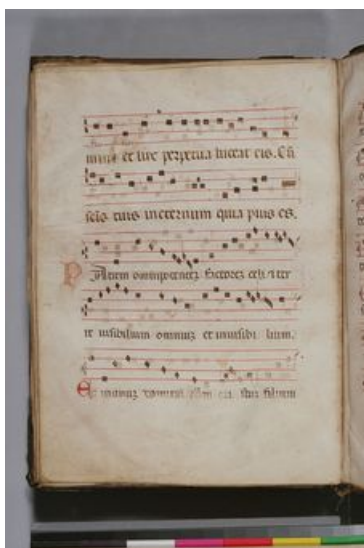 et lux perpetua luceat eis. Cũ
scīs tuis ineternum quia pius es.
Patrem omnipotentez factorez celi et ter
re uisibilium omniuz et inuisibi lium.
Et in unuz dominum filium